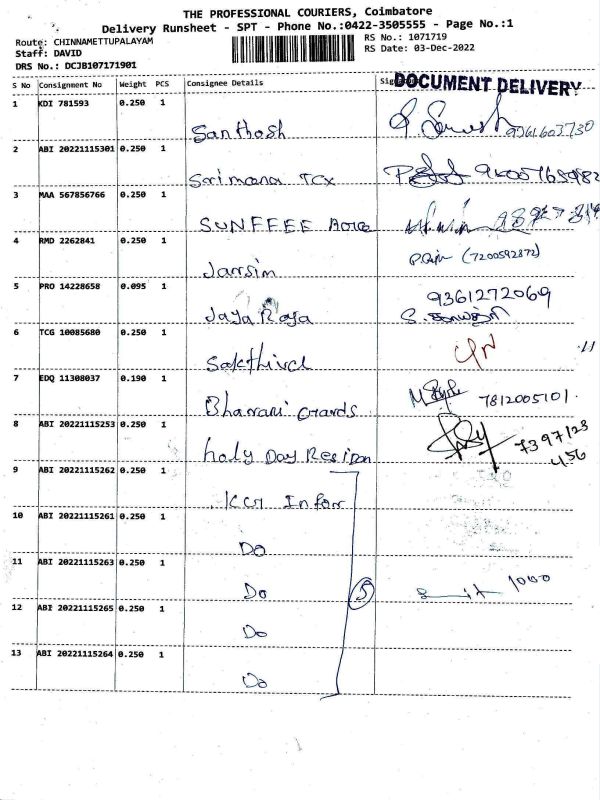 THE PROFESSIONAL COURIERS, Coimbatore
Delivery Runsheet - SPT - Phone No.:0422-3505555 - Page No.:1
Route: CHINNAMETTUPALAYAM
Staff: DAVID
DRS No.: DCJB107171901
RS No.: 1071719
RS Date: 03-Dec-2022
S No Consignment No Weight PCS Consignee Details
DOCUMENT DELIVERY
1 KDI 781593 0.250 1
Santhosh 9361603730
2 ABI 20221115301 0.250 1
Srimana Tex
3 MAA 567856766 0.250 1
SUNFEEE
4 RMD 2262841 0.250 1
Jansim (7200592872)
5 PRO 14228658 0.095 1
9361272069
Jaya Roja
6 TCG 10085680 0.250 1
Sakthivel
7 EDQ 11308037 0.190 1
Bharani Gards 7812005101.
8 ABI 20221115253 0.250 1
holy Day Residan 7397123
456
9 ABI 20221115262 0.250 1
KCT Infor
10 ABI 20221115261 0.250 1
Do
11 ABI 20221115263 0.250 1
Do 5
12 ABI 20221115265 0.250 1
Do
13 ABI 20221115264 0.250 1
Do